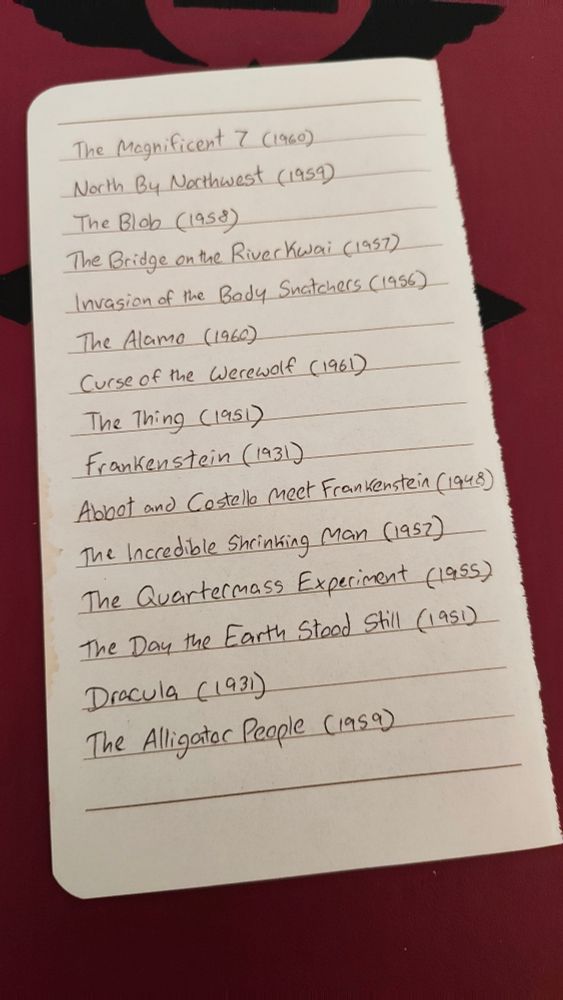 The Magnificent 7 (1960)
North By Northwest (1959)
The Blob (1958)
The Bridge on the River Kwai (1957)
Invasion of the Body Snatchers (1956)
The Alamo (1960)
Curse of the Werewolf (1961)
The Thing (1951)
Frankenstein (1931)
Abbot and Costello Meet Frankenstein (1948)
The Incredible Shrinking Man (1957)
The Quartermass Experiment (1955)
The Day the Earth Stood Still (1951)
Dracula (1931)
The Alligator People (1959)